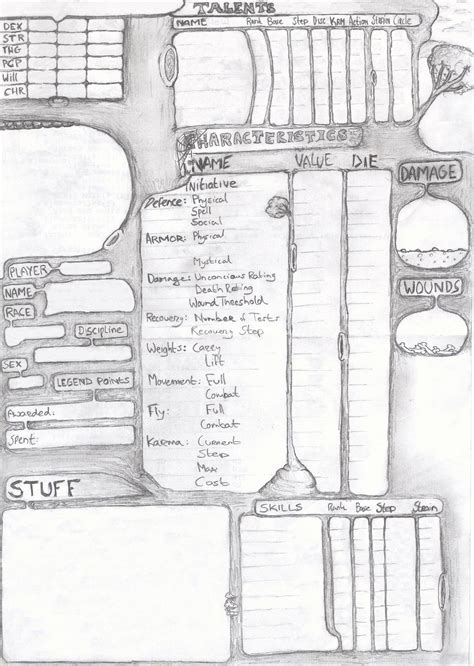 TALENTS
NAME Rank Base Step Disc KRM Action Strain Circle
DEX
STR
THG
PCP
Will
CHR
CHARACTERISTICS
NAME VALUE DIE
Initiative
Defence: Physical
Spell
Social
ARMOR: Physical
Mystical
Damage: Unconcious Rating
Death Rating
Wound Threshold
Recovery: Number of Tests
Recovery Step
Weights: Carry
Lift
Movement: Full
Combat
Fly: Full
Combat
Karma: Current
Step
Max
Cost
DAMAGE
WOUNDS
PLAYER
NAME
RACE
Discipline
SEX
LEGEND POINTS
Awarded:
Spent:
STUFF
SKILLS Rank Base Step Strain